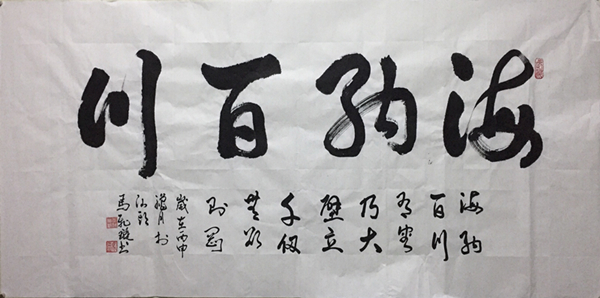 海納百川
海納
百川
有容
乃大
壁立
千仞
無欲
則剛
歲在丙申
臘月於
汕頭
馬飛書